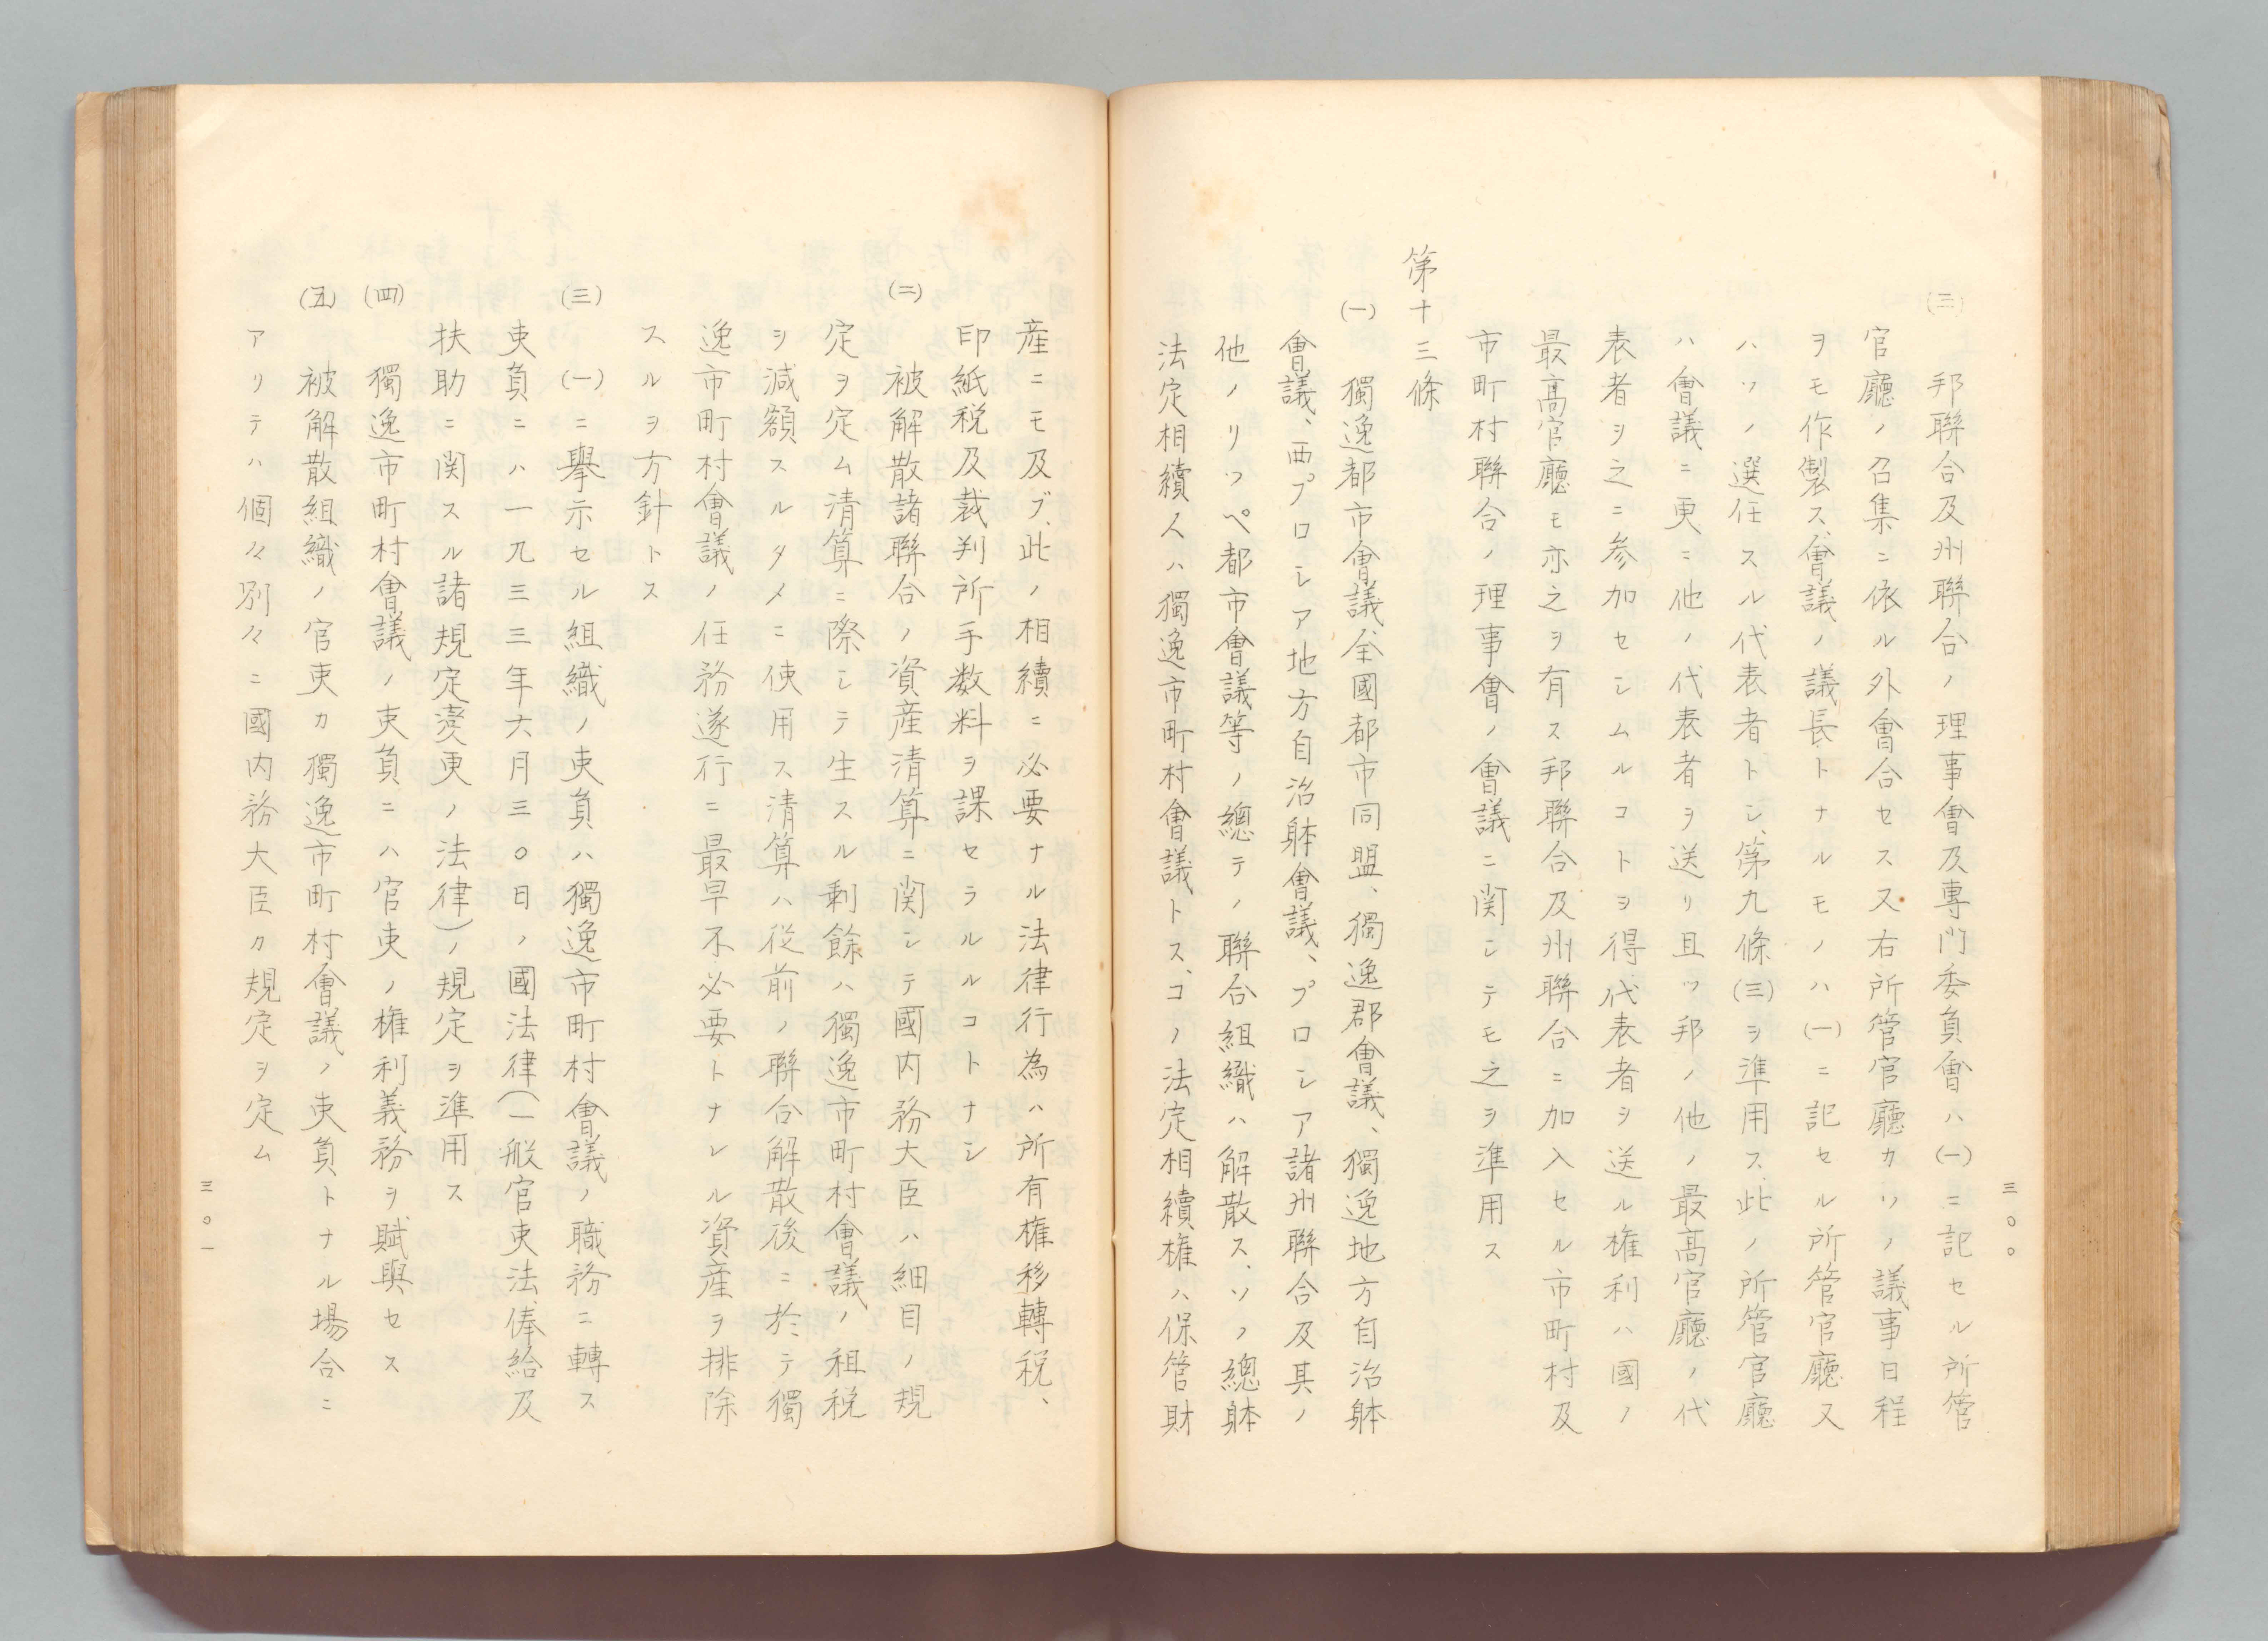 三〇〇
(二)　邦聯合及州聯合ノ理事會及專門委員會ハ(一)ニ記セル所管
官廳ノ召集ニ依ル外會合セス又右所管官廳カソノ議事日程
ヲモ作製ス、會議ノ議長トナルモノハ(一)ニ記セル所管官廳又
ハソノ選任スル代表者トシ、第九條(三)ヲ準用ス、此ノ所管官廳
ハ會議ニ更ニ他ノ代表者ヲ送リ且ツ邦ノ他ノ最高官廳ノ代
表者ヲ之ニ参加セシムルコトヲ得代表者ヲ送ル権利ハ國ノ
最高官廳モ亦之ヲ有ス邦聯合及州聯合ニ加入セル市町村及
市町村聯合ノ理事會ノ會議ニ関シテモ之ヲ準用ス
第十三條
(一)　獨逸都市會議、全國都市同盟、獨逸郡會議、獨逸地方自治躰
會議、西プロシア地方自治躰會議、プロシア諸州聯合及其ノ
他ノリッペ都市會議等ノ總テノ聯合組織ハ解散ス、ソノ總躰
法定相續人ハ獨逸市町村會議トス、コノ法定相續権ハ保管財
産ニモ及ブ、此ノ相續ニ必要ナル法律行為ハ所有権移轉税、
印紙税及裁判所手数料ヲ課セラルルコトナシ
(二)　被解散諸聯合ノ資産清算ニ関シテ國内務大臣ハ細目ノ規
定ヲ定ム清算ニ際シテ生スル剰餘ハ獨逸市町村會議ノ租税
ヲ減額スルタメニ使用ス清算ハ従前ノ聯合解散後ニ於テ獨
逸市町村會議ノ任務遂行ニ最早不必要トナレル資産ヲ排除
スルヲ方針トス
(三)　(一)ニ擧示セル組織ノ吏員ハ獨逸市町村會議ノ職務ニ轉ス
吏員ニハ一九三三年六月三〇日ノ國法律(一般官吏法、俸給及
扶助ニ関スル諸規定変更ノ法律)ノ規定ヲ準用ス
(四)　獨逸市町村會議ノ吏員ニハ官吏ノ権利義務ヲ賦與セス
(五)　被解散組織ノ官吏カ獨逸市町村會議ノ吏員トナル場合ニ
アリテハ個々別々ニ國内務大臣カ規定ヲ定ム
三〇一